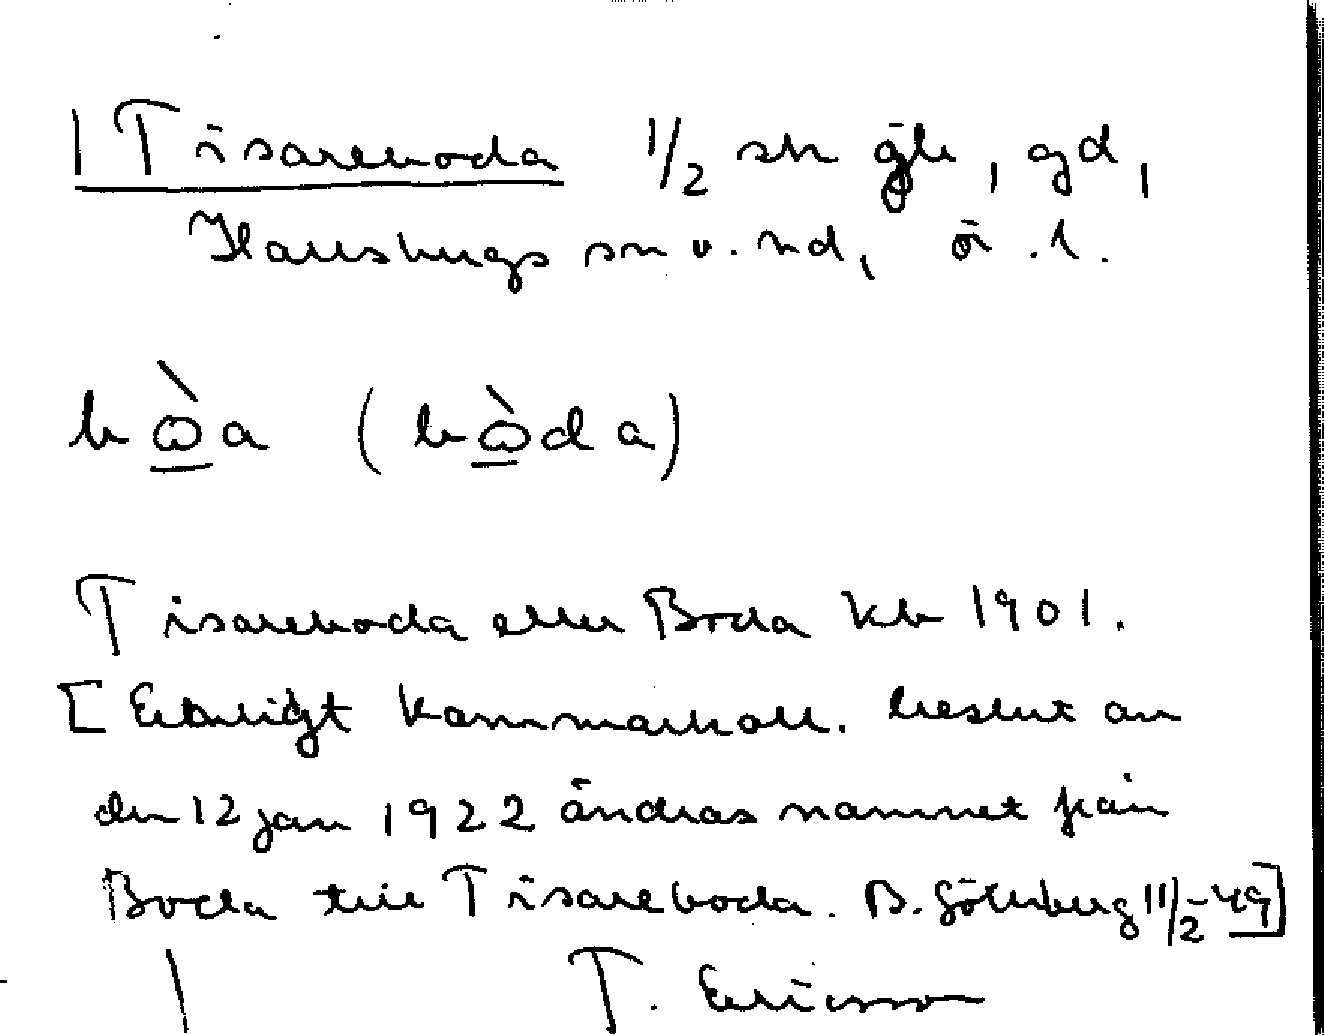 Tisareboda 1/2 sk gb, gd,
Hallsbergs sn v. nd, ö. l.
bωa (bωda)
Tisareboda eller Boda kb 1901.
[Enligt kammarkoll. beslut av
den 12 jan 1922 ändras namnet från
Boda till Tisareboda. B. Götlerberg 11/2-49]
T. Ericsson